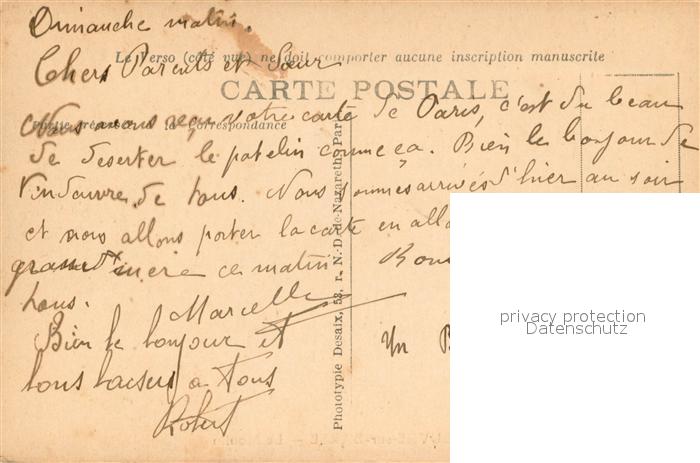 Dimanche matin.
Le Verso (côté vue) ne doit comporter aucune inscription manuscrite
Chers Parents et Sœur
CARTE POSTALE
Nous avons reçu votre carte de Paris, c'est du beau
la correspondance
de deserter le patelin comme ça. Bien le bonjour de
Vendeuvre de tous. Nous sommes arrivés d'hier au soir
et nous allons porter la carte en allant
grand mère ce matin Bons
tous.
Marcelle
Bien le bonjour et
bons baisers a tous
Robert
Un B
Phototypie Desaix, 53, r. N.-D.-de-Nazareth, Par
privacy protection
Datenschutz